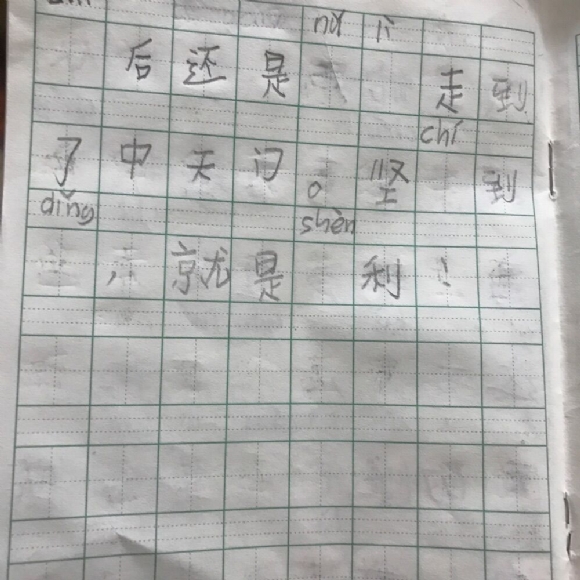 nǔ lì
后还是走到
chí
了中天门。坚到
dǐng shèn
，就是利！